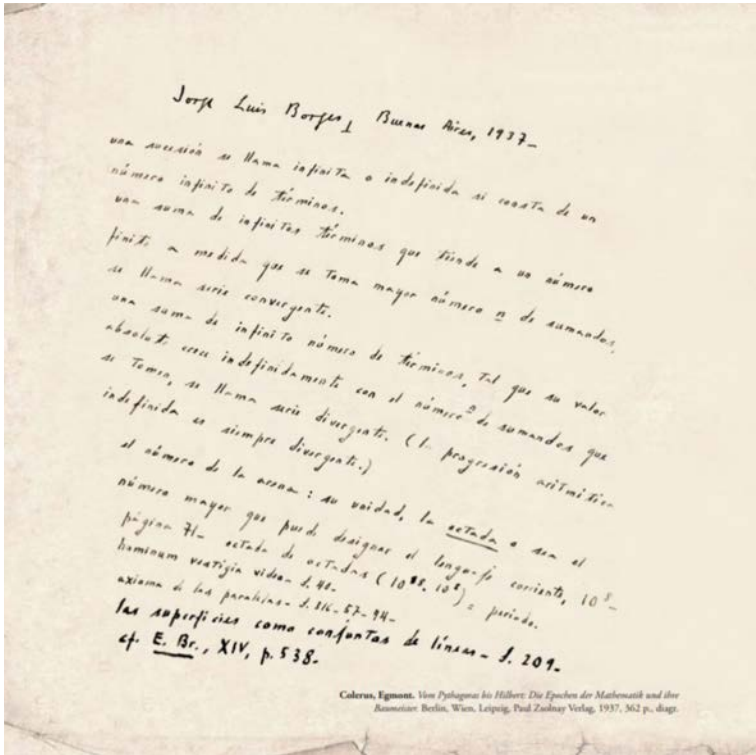 Jorge Luis Borges, Buenos Aires, 1937-
una sucesión se llama infinita o indefinida si consta de un
número infinito de términos.
una suma de infinitos términos que tiende a un número
finito a medida que se toma mayor número n de sumandos,
se llama serie convergente.
una suma de infinito número de términos, tal que su valor
absoluto crece indefinidamente con el número n de sumandos que
se tomen, se llama serie divergente. (la progresión aritmética
indefinida es siempre divergente.)
el número de la arena: su unidad, la octada o sea el
número mayor que puede designar el lenguaje corriente, 10⁸-
página 71- octada de octadas ( ) = período.
hominum vestigia video- S. 40-
axioma de las paralelas- S. 216-57-94-
las superficies como conjuntos de líneas- S. 209-
cf. E. Br., XIV, p. 538-
Colerus, Egmont. Vom Pythagoras bis Hilbert: Die Epochen der Mathematik und ihre
Baumeister. Berlin, Wien, Leipzig, Paul Zsolnay Verlag, 1937, 362 p., diagr.